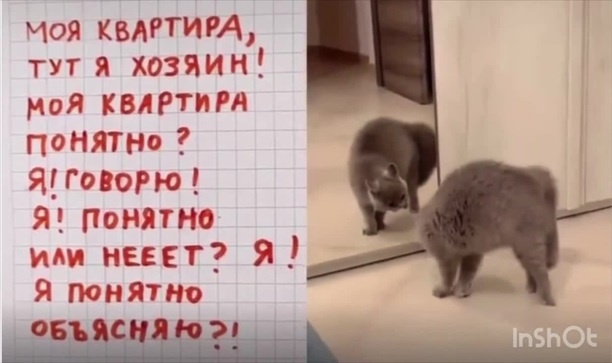 МОЯ КВАРТИРА,
ТУТ Я ХОЗЯИН!
МОЯ КВАРТИРА
ПОНЯТНО?
Я! ГОВОРЮ!
Я! ПОНЯТНО
ИЛИ НЕЕЕТ? Я!
Я ПОНЯТНО
ОБЪЯСНЯЮ?!
InShOt